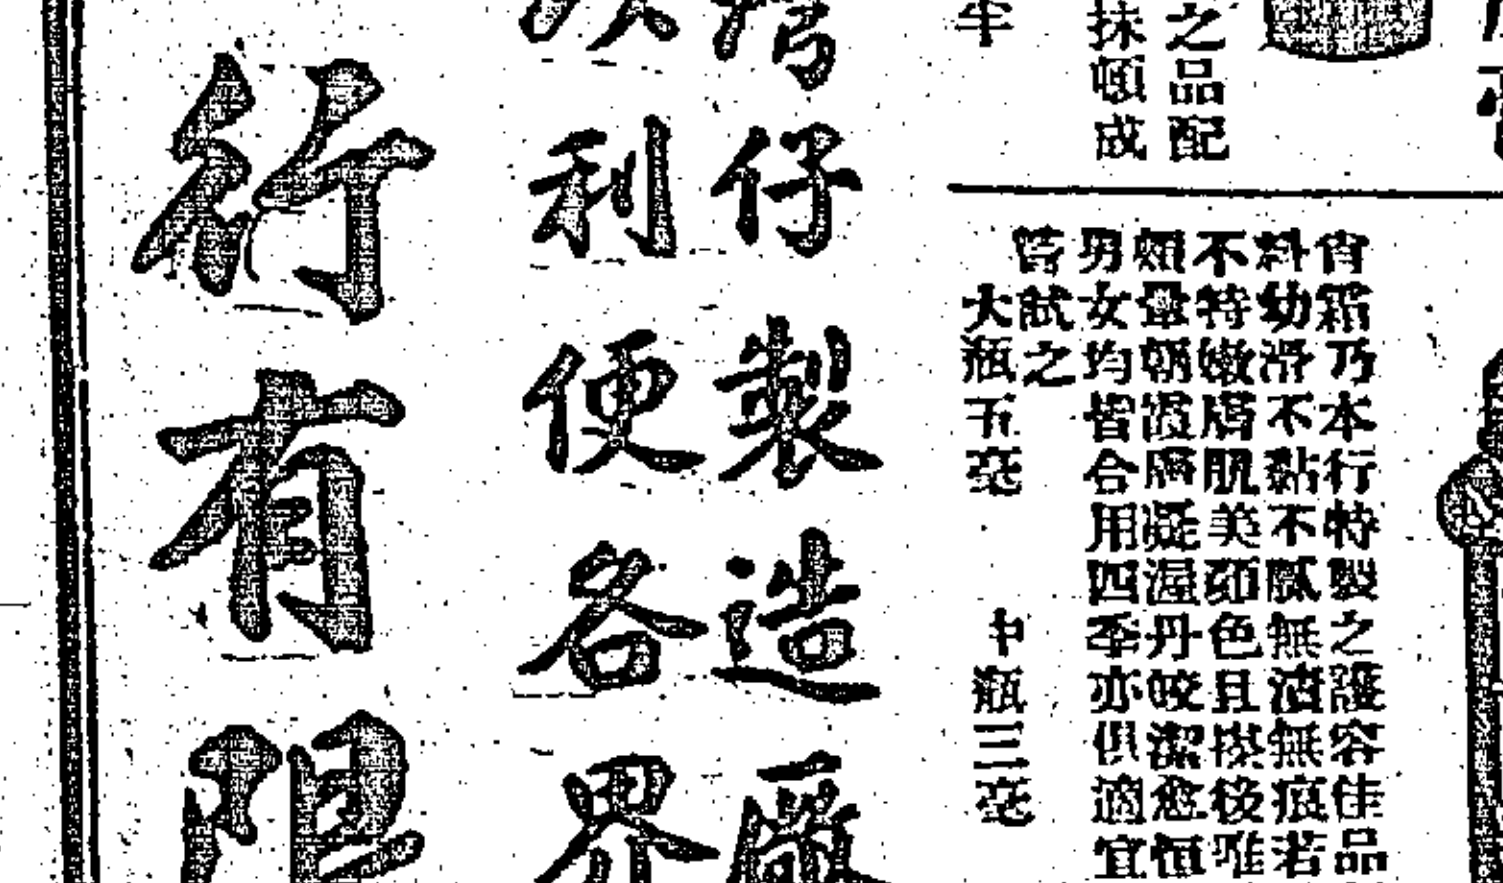 之品配
抹頓成
宵霜乃本行特製之護容佳品
料幼滑不黏不膩無漬無痕若
不特嫩膚肌美顏色且搽後唯
頰暈朝霞膚凝渥丹皎潔愈恒
男女均皆合用四季亦俱適宜
嘗試之
大瓶五毫 中瓶三毫
仔製造嚴
利便各界
行有限